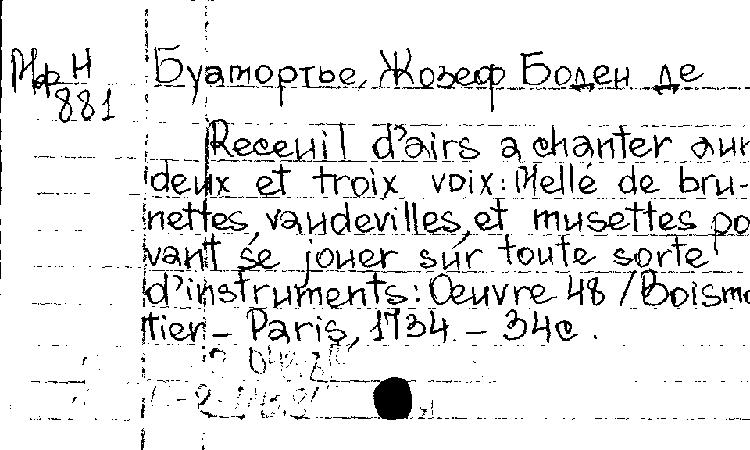 Мф Н Буатортье, Жозеф Боден де
881
Receuil d'airs a chanter aur
deux et troix voix: Mellé de bru-
nettes, vaudevilles, et musettes po
vant se jouer sur toute sorte
d'instruments: Œuvre 48 / Boismo
tier - Paris, 1734 - 34c.